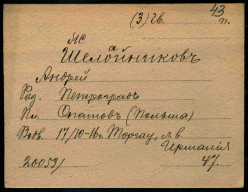 (3) гв. 43
п.
Як
Шелайниковъ
Андрей
Ряд. Петроградъ
Пл. Опатовъ (Польша)
Возв. 17/10-16г. Торгау, л.в.
Германія
20059) 47.